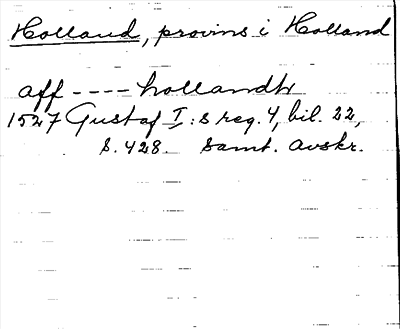 Holland, provins i Holland
aff ---- hollandh
1527 Gustaf I:s reg. 4, bil. 22,
S. 428. Samt. avskr.